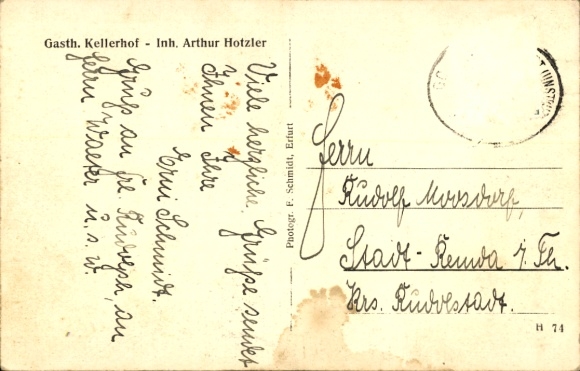 Gasth. Kellerhof - Inh. Arthur Hotzler
Viele herzliche Grüße sendet
Ihnen Ihre
Erni Schmidt.
Gruß an Frl. Rudolph, an
Herrn Waefer u.s.w.
Photogr. F. Schmidt, Erfurt
Herrn
Rudolf Moosdorf,
Stadt-Remda i. Th.
Krs. Rudolstadt.
H 74